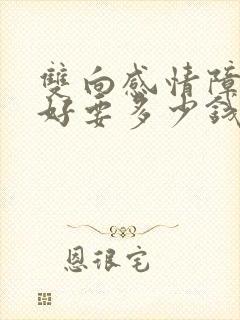 雙向感情障
好要多少錢
恩很宅